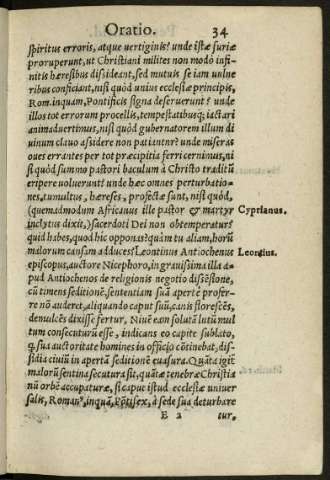 Oratio. 34
spiritus erroris, atque vertiginis? unde istæ furiæ
proruperunt, ut Christiani milites non modò infi-
nitis hæresibus dissideant, sed mutuis se iam vulne
ribus conficiant, nisi quòd unius ecclesiæ principis,
Rom. inquam, Pontificis signa deseruerunt? unde
illos tot errorum procellis, tempestatibusq; iactari
animadvertimus, nisi quòd gubernatorem illum di
uinum clauo assidere non patiuntur? unde miseras
oues errantes per tot præcipitia ferri cernimus, ni
si quòd summo pastori baculum à Christo traditũ
eripere voluerunt? unde hæc omnes perturbatio-
nes, tumultus, hæreses, profectæ sunt, nisi quòd,
(quemadmodum Africanus ille pastor & martyr
Cyprianus.
inclytus dixit,) sacerdoti Dei non obtemperatur?
quid habes, quod hic opponas? quàm tu aliam, horũ
malorum causam adduces? Leontinus Antiochenus
Leontius.
episcopus, auctore Nicephoro, in grauissima illa a-
pud Antiochenos de religionis negotio dissẽsione,
cũ timens seditionẽ, sententiam suã apertè profer-
re nõ auderet, aliquando caput suũ, canis florescẽs,
demulcẽs dixisse fertur, Niuẽ eam solutã lutũ mul
tum consecuturũ esse, indicans eo capite sublato,
q, sua auctoritate homines in officio cõtinebat, dis-
sidia ciuiũ in apertã seditionẽ euasura. Quãta igit
malorũ sentina secutura sit, quãtæ tenebræ Christia
nũ orbẽ accupaturæ, si caput istud ecclesiæ univer
salis, Romanꝰ, inquã, Põtifex, à sede sua deturbare
E 2 tur,